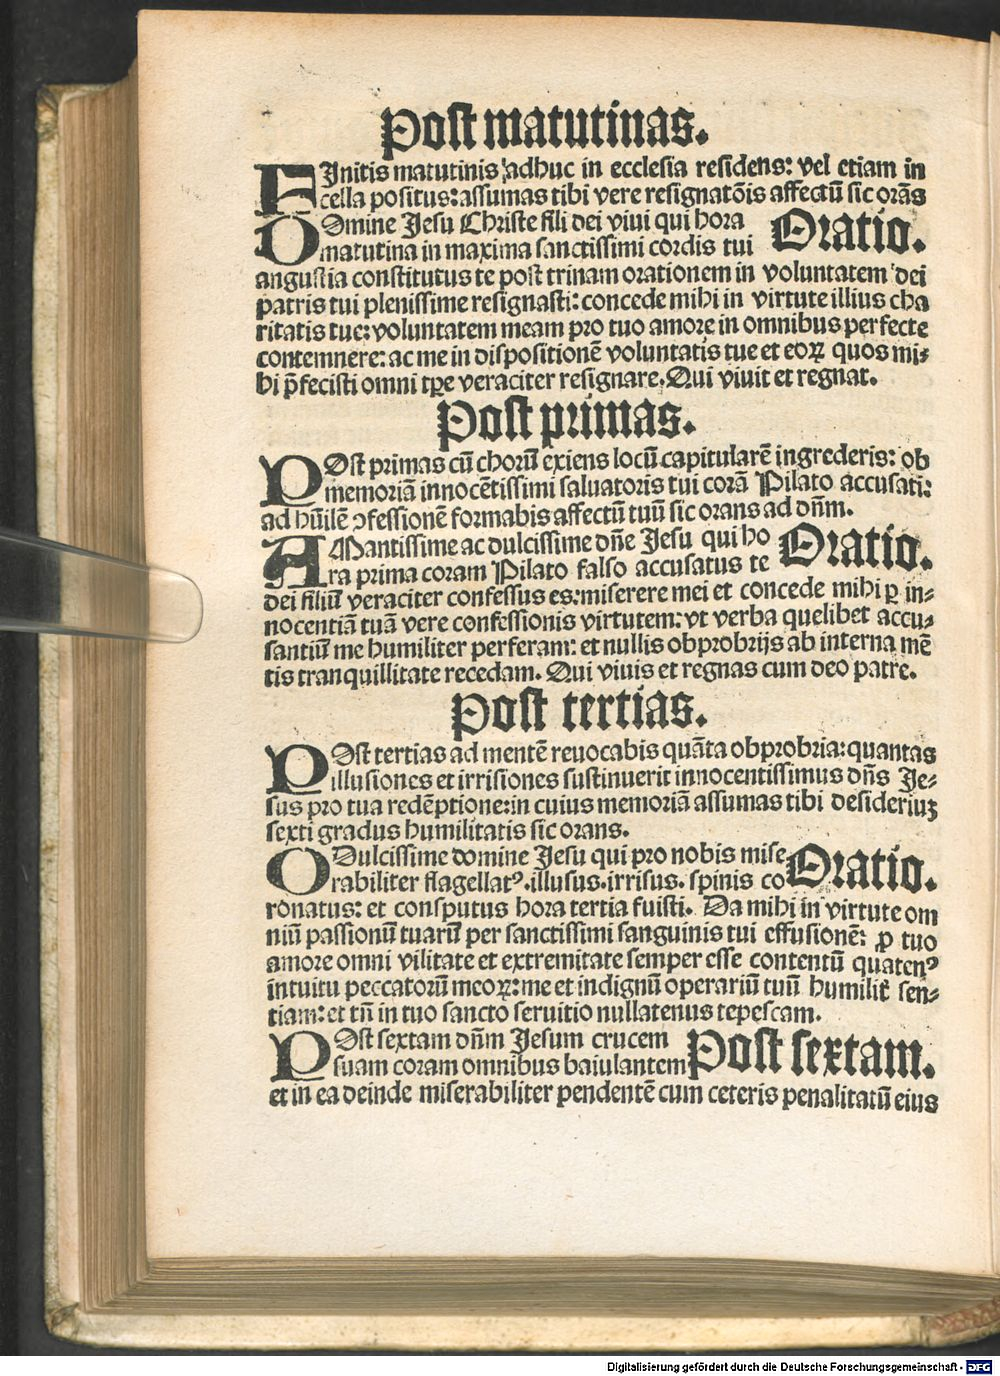 Post matutinas.
FInitis matutinis adhuc in ecclesia residens: vel etiam in
cella positus: assumas tibi vere resignatõis affectũ sic orãs
DOmine Jesu Christe fili dei vivi qui hora Oratio.
matutina in maxima sanctissimi cordis tui
angustia constitutus te post trinam orationem in voluntatem dei
patris tui plenissime resignasti: concede mihi in virtute illius cha
ritatis tue: voluntatem meam pro tuo amore in omnibus perfecte
contemnere: ac me in dispositionẽ voluntatis tue et eoꝝ quos mi⸗
hi p̃fecisti omni tꝑe veraciter resignare. Qui vivit et regnat.
Post primas.
POst primas cũ chorũ exiens locũ capitularẽ ingrederis: ob
memoriã innocẽtissimi saluatoris tui corã Pilato accusati:
ad hũilẽ ↄfessionẽ formabis affectũ tuũ sic orans ad dñm.
AMantissime ac dulcissime dñe Jesu qui ho Oratio.
ra prima coram Pilato falso accusatus te
dei filiũ veraciter confessus es: miserere mei et concede mihi ꝑ in⸗
nocentiã tuã vere confessionis virtutem: vt verba quelibet accu⸗
santiũ me humiliter perferam: et nullis obprobrijs ab interna mẽ
tis tranquillitate recedam. Qui vivis et regnas cum deo patre.
Post tertias.
POst tertias ad mentẽ reuocabis quãta obprobria: quantas
illusiones et irrisiones sustinuerit innocentissimus dñs Je⸗
sus pro tua redẽptione: in cuius memoriã assumas tibi desideriuꝫ
sexti gradus humilitatis sic orans.
ODulcissime domine Jesu qui pro nobis mise Oratio.
rabiliter flagellatꝰ. illusus. irrisus. spinis co
ronatus: et consputus hora tertia fuisti. Da mihi in virtute om
niũ passionũ tuarũ per sanctissimi sanguinis tui effusionẽ: ꝓ tuo
amore omni vilitate et extremitate semper esse contentũ quatenꝰ
intuitu peccatorũ meoꝝ: me et indignũ operariũ tuũ humilit̃ sen⸗
tiam: et tñ in tuo sancto seruitio nullatenus tepescam.
POst sextam dñm Jesum crucem Post sextam.
suam coram omnibus baiulantem
et in ea deinde miserabiliter pendentẽ cum ceteris penalitatũ eius
Digitalisierung gefördert durch die Deutsche Forschungsgemeinschaft - DFG